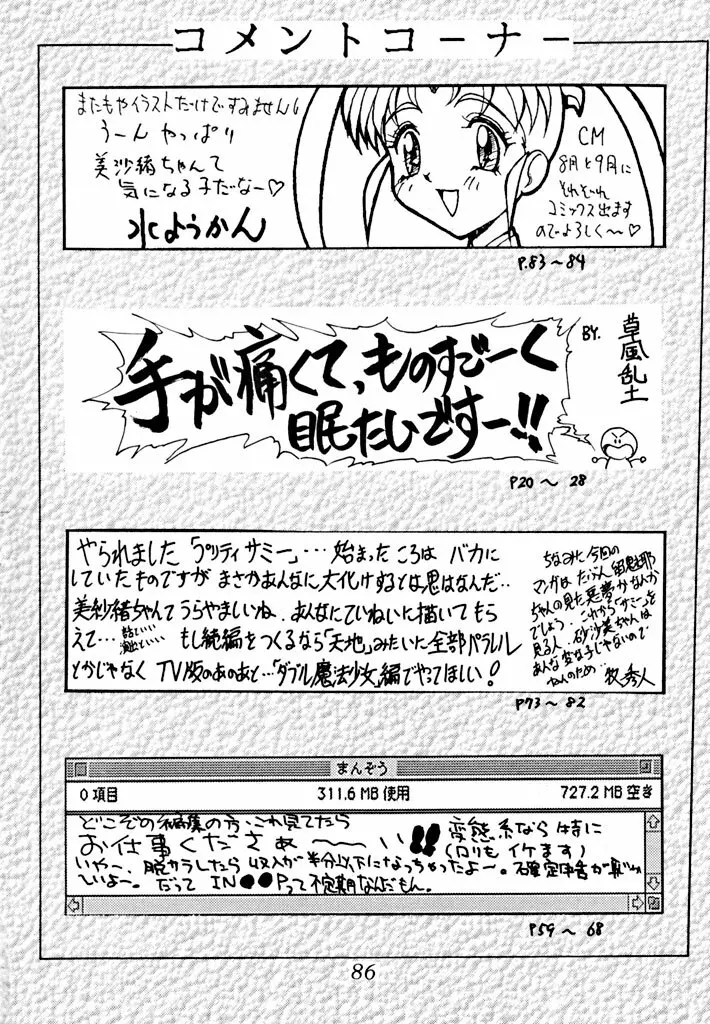 コメントコーナー
またもやイラストだけですみません
うーん やっぱり
美沙緒ちゃんて
気になる子だなー♡
水ようかん
CM
8月と9月に
それぞれ
コミックス出ます
のでよろしく〜♡
P.83〜84
手が痛くて、ものすごーく
眠たいですー!!
BY.
草風乱土
P20〜28
やられました「プリティサミー」…始まったころは バカに
していたものですが まさかあんなに大化けするとは思はなんだ‥
美紗緒ちゃんてうらやましいね、あんなにていねいに描いてもら
えて…
もし続編をつくるなら「天地」みたいに全部パラレル
とかじゃなく TV版のあのあと…「ダブル魔法少女」編でやってほしい!
ちなみに今回の
マンガは たぶん 留魅耶
ちゃんの見た悪夢かなんか
でしょう。これから「サミー」を
見る人、砂沙美ちゃんは
あんな変な子じゃないので
ねんのため…
牧秀人
P73〜82
まんぞう
0 項目 311.6 MB 使用 727.2 MB 空き
どこぞの編集の方、これ見てたら
お仕事くださぁ〜〜い!! 変態系なら特に
(ロリもイケます)
いやー、脱サラしたら収入が半分以下になっちゃったよー。確定申告が
いよー。だって IN●●Pって不定期なんだもん。
P59〜68
86